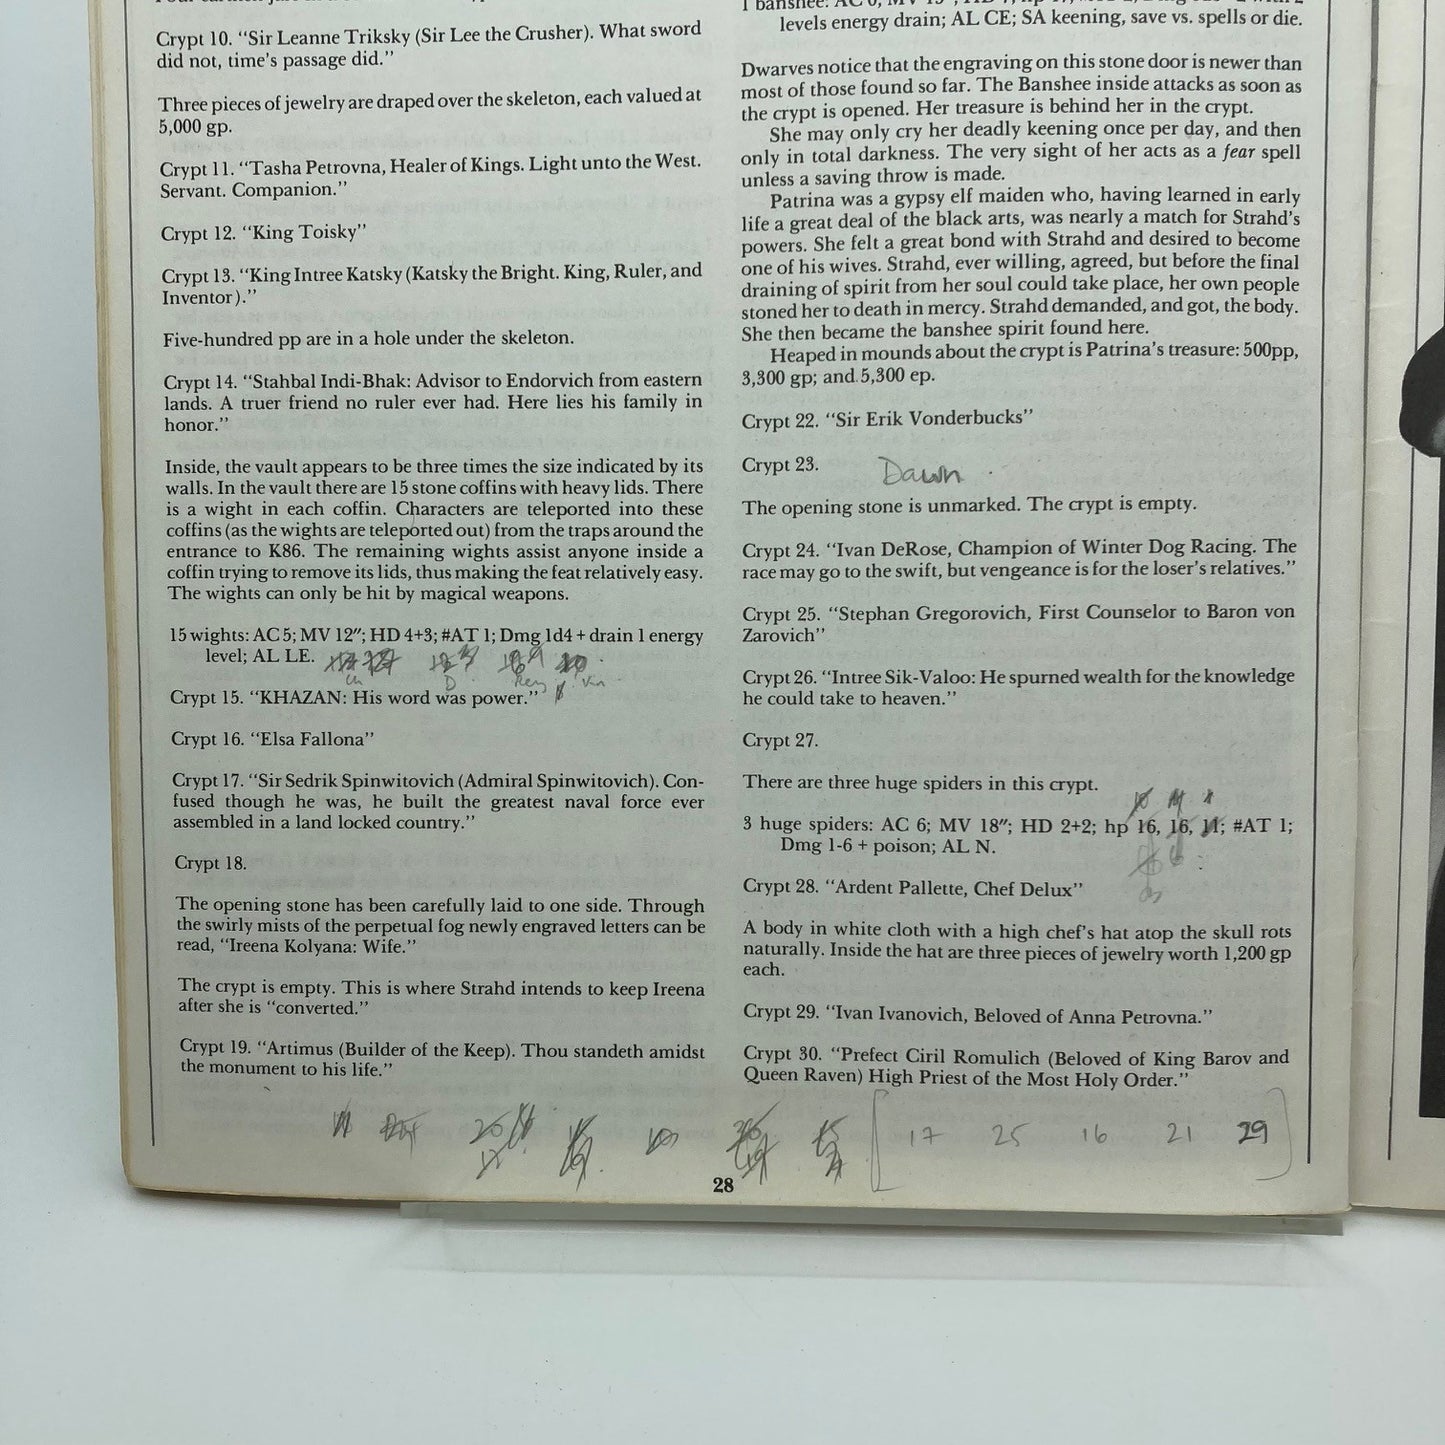 Crypt 10. “Sir Leanne Triksky (Sir Lee the Crusher). What sword
did not, time’s passage did.”
Three pieces of jewelry are draped over the skeleton, each valued at
5,000 gp.
Crypt 11. “Tasha Petrovna, Healer of Kings. Light unto the West.
Servant. Companion.”
Crypt 12. “King Toisky”
Crypt 13. “King Intree Katsky (Katsky the Bright. King, Ruler, and
Inventor).”
Five-hundred pp are in a hole under the skeleton.
Crypt 14. “Stahbal Indi-Bhak: Advisor to Endorvich from eastern
lands. A truer friend no ruler ever had. Here lies his family in
honor.”
Inside, the vault appears to be three times the size indicated by its
walls. In the vault there are 15 stone coffins with heavy lids. There
is a wight in each coffin. Characters are teleported into these
coffins (as the wights are teleported out) from the traps around the
entrance to K86. The remaining wights assist anyone inside a
coffin trying to remove its lids, thus making the feat relatively easy.
The wights can only be hit by magical weapons.
15 wights: AC 5; MV 12″; HD 4+3; #AT 1; Dmg 1d4 + drain 1 energy
level; AL LE.
Crypt 15. “KHAZAN: His word was power.”
Crypt 16. “Elsa Fallona”
Crypt 17. “Sir Sedrik Spinwitovich (Admiral Spinwitovich). Con-
fused though he was, he built the greatest naval force ever
assembled in a land locked country.”
Crypt 18.
The opening stone has been carefully laid to one side. Through
the swirly mists of the perpetual fog newly engraved letters can be
read, “Ireena Kolyana: Wife.”
The crypt is empty. This is where Strahd intends to keep Ireena
after she is “converted.”
Crypt 19. “Artimus (Builder of the Keep). Thou standeth amidst
the monument to his life.”
levels energy drain; AL CE; SA keening, save vs. spells or die.
Dwarves notice that the engraving on this stone door is newer than
most of those found so far. The Banshee inside attacks as soon as
the crypt is opened. Her treasure is behind her in the crypt.
She may only cry her deadly keening once per day, and then
only in total darkness. The very sight of her acts as a fear spell
unless a saving throw is made.
Patrina was a gypsy elf maiden who, having learned in early
life a great deal of the black arts, was nearly a match for Strahd’s
powers. She felt a great bond with Strahd and desired to become
one of his wives. Strahd, ever willing, agreed, but before the final
draining of spirit from her soul could take place, her own people
stoned her to death in mercy. Strahd demanded, and got, the body.
She then became the banshee spirit found here.
Heaped in mounds about the crypt is Patrina’s treasure: 500pp,
3,300 gp; and 5,300 ep.
Crypt 22. “Sir Erik Vonderbucks”
Crypt 23.
Dawn
The opening stone is unmarked. The crypt is empty.
Crypt 24. “Ivan DeRose, Champion of Winter Dog Racing. The
race may go to the swift, but vengeance is for the loser’s relatives.”
Crypt 25. “Stephan Gregorovich, First Counselor to Baron von
Zarovich”
Crypt 26. “Intree Sik-Valoo: He spurned wealth for the knowledge
he could take to heaven.”
Crypt 27.
There are three huge spiders in this crypt.
3 huge spiders: AC 6; MV 18″; HD 2+2; hp 16, 16, 11; #AT 1;
Dmg 1-6 + poison; AL N.
Crypt 28. “Ardent Pallette, Chef Delux”
A body in white cloth with a high chef’s hat atop the skull rots
naturally. Inside the hat are three pieces of jewelry worth 1,200 gp
each.
Crypt 29. “Ivan Ivanovich, Beloved of Anna Petrovna.”
Crypt 30. “Prefect Ciril Romulich (Beloved of King Barov and
Queen Raven) High Priest of the Most Holy Order.”
17 25 16 21 29
28